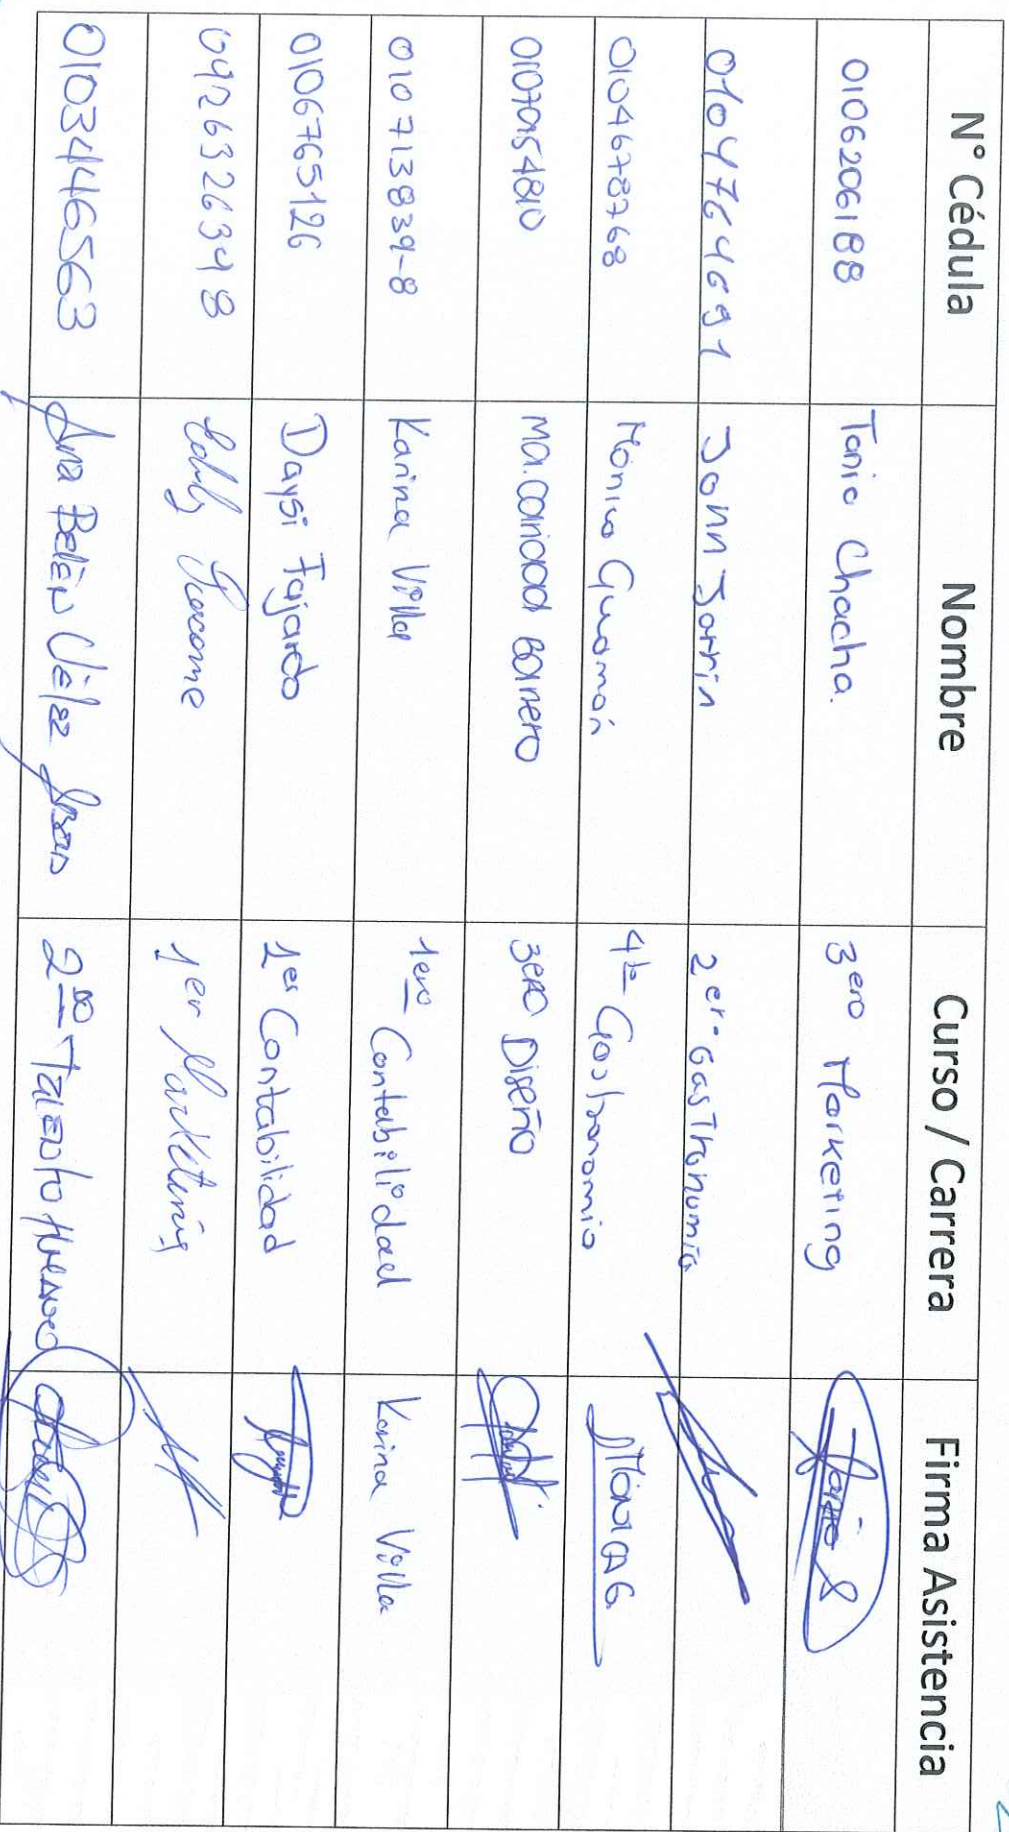 N° Cédula Nombre Curso / Carrera Firma Asistencia
0106206188 Tania Chacha. 3ero Marketing
0104764691 John Jarrin 2er. Gastronomía
0104678768 Mónica Guamán 4to Gastronomia MónicaG.
Ma. Caridad 3ero Diseño
010713839-8 Karina Villa 1ero Contabilidad Karina Villa
0106765126 Daysi Fajardo 1er Contabilidad
0926326348 1er Marketing
0103446563 Ana Belén Vélez 2do Talento Humano